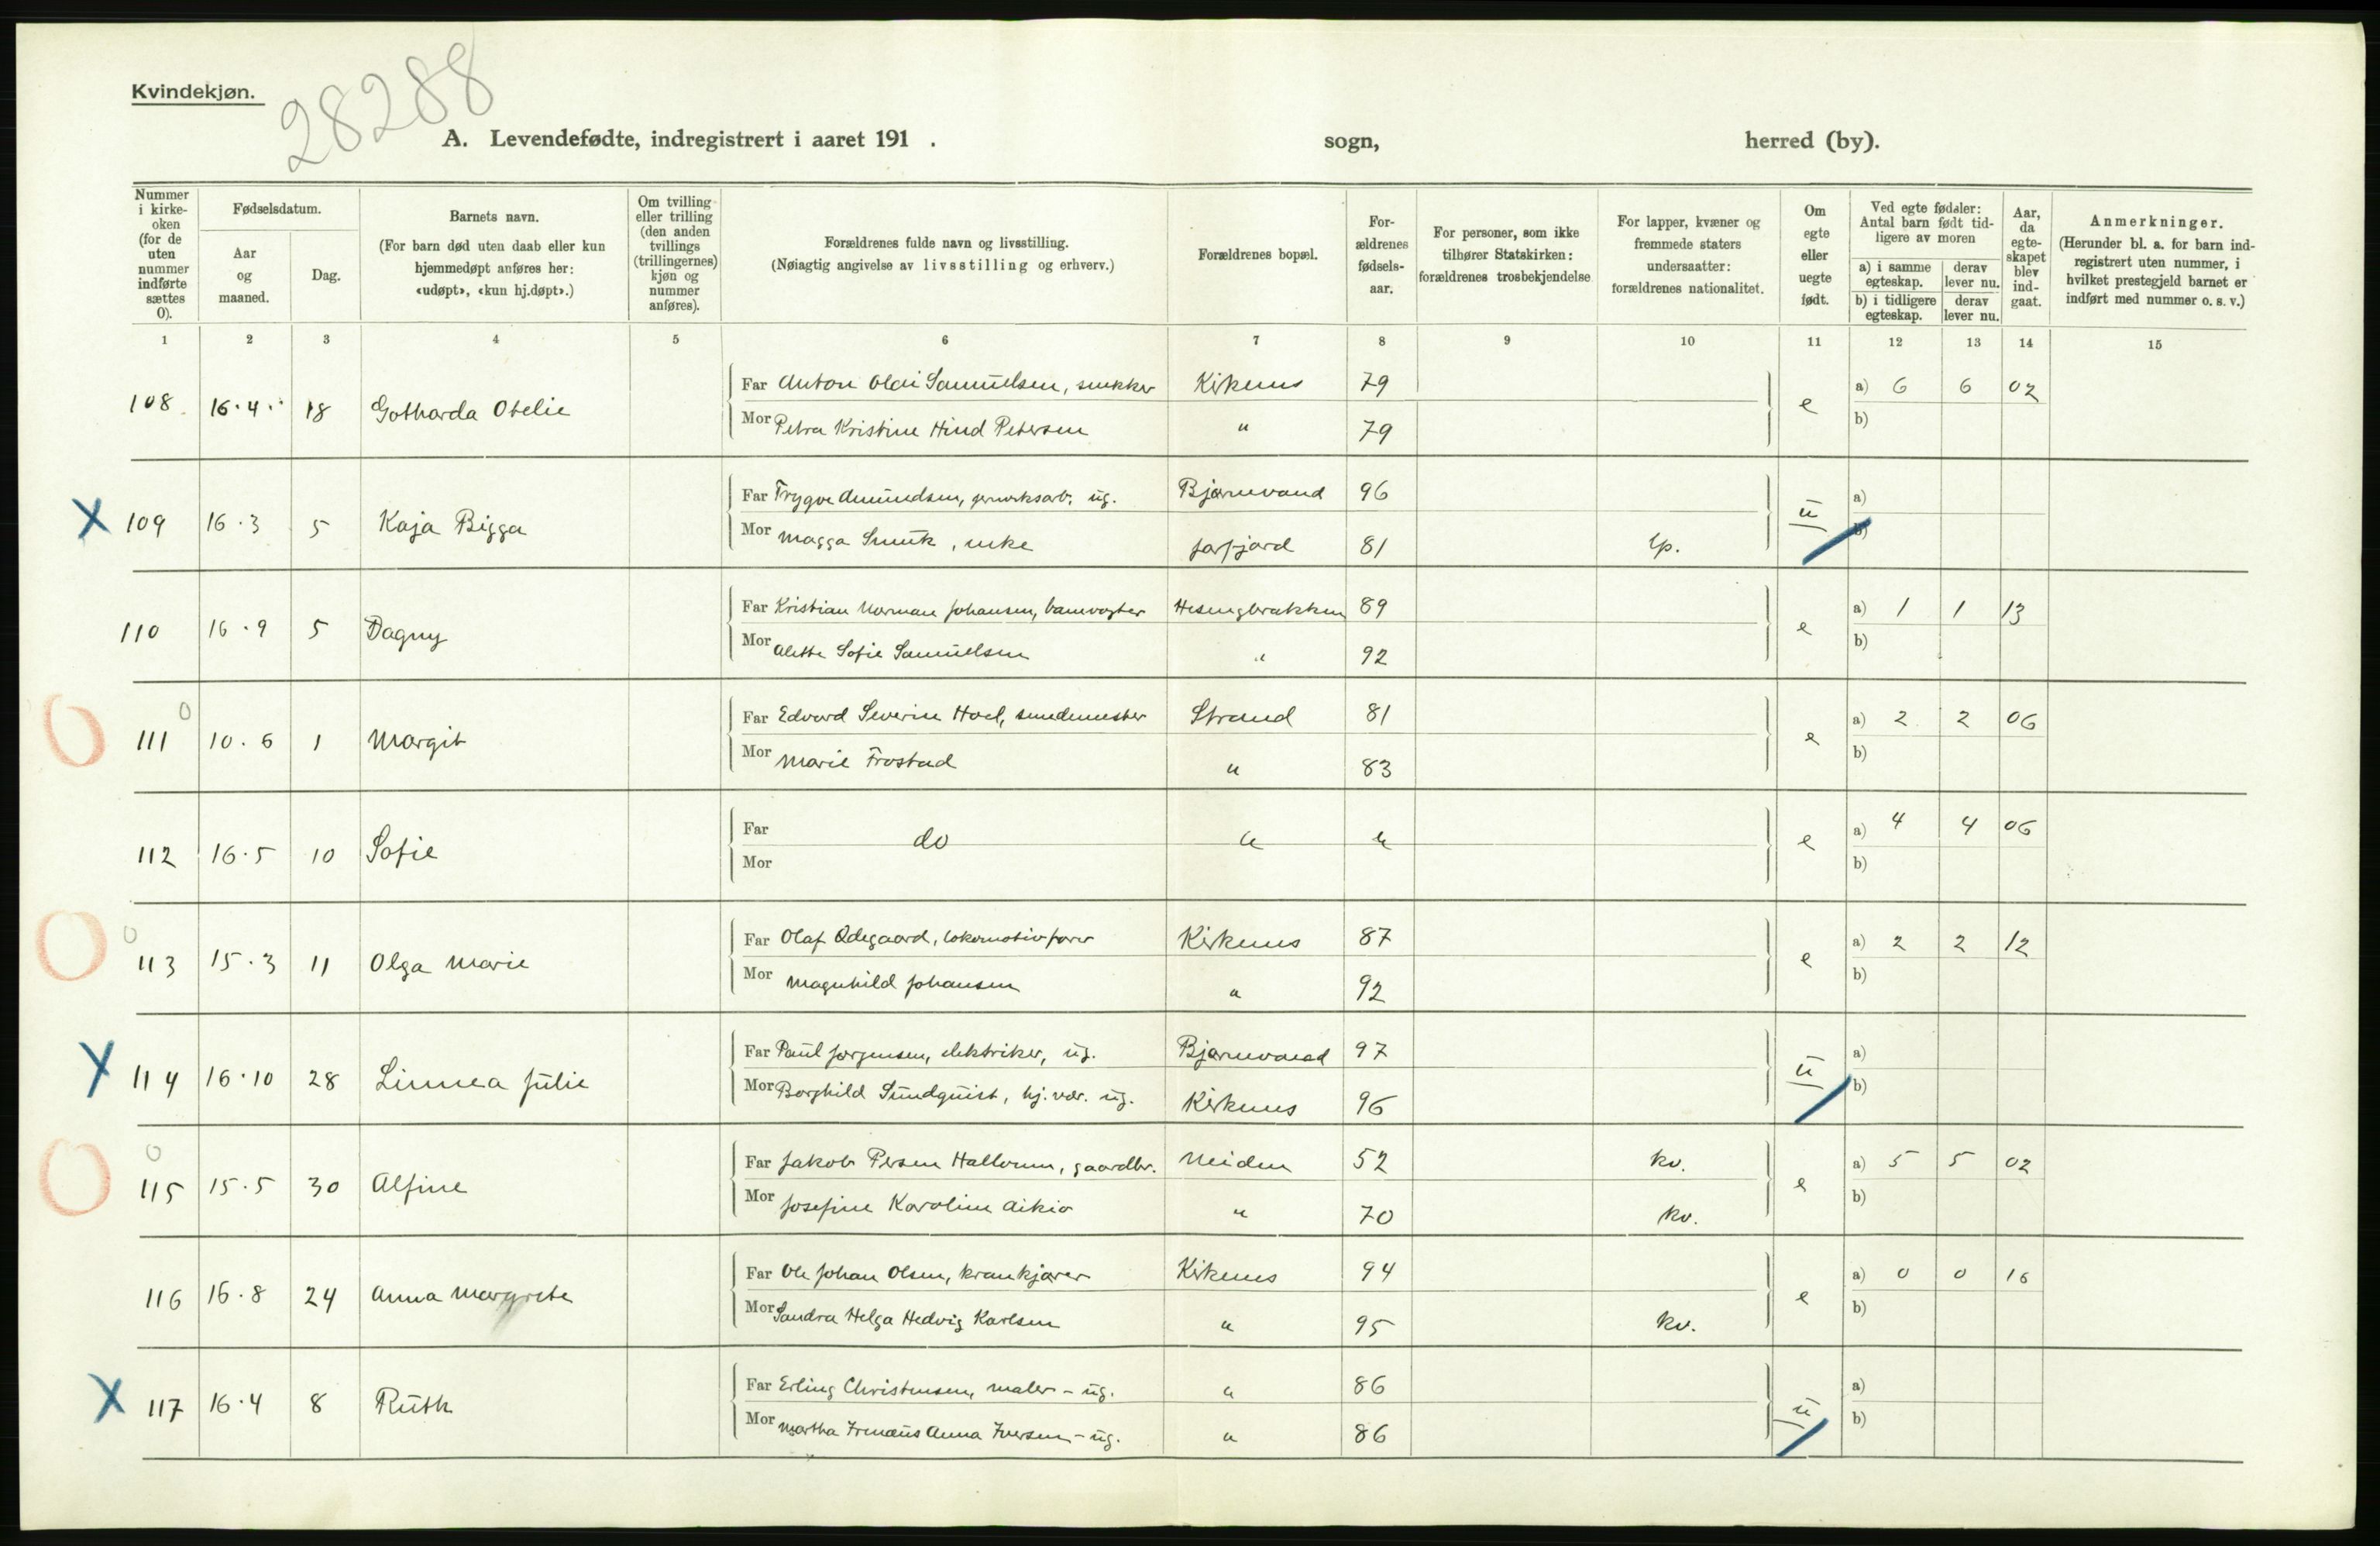 Kvindekjøn.
28288
A. Levendefødte, indregistrert i aaret 191 . sogn, herred (by).
Nummer i kirkeoken (for de uten nummer indførte sættes 0).
Fødselsdatum.
Aar og maaned.
Dag.
Barnets navn. (For barn død uten daab eller kun hjemmedøpt anføres her: «udøpt», «kun hj.døpt».)
Om tvilling eller trilling (den anden tvillings (trillingernes) kjøn og nummer anføres).
Forældrenes fulde navn og livsstilling. (Nøiagtig angivelse av livsstilling og erhverv.)
Forældrenes bopæl.
Forældrenes fødselsaar.
For personer, som ikke tilhører Statskirken: forældrenes trosbekjendelse
For lapper, kvæner og fremmede staters undersaatter: forældrenes nationalitet.
Om egte eller uegte født.
Ved egte fødsler: Antal barn født tidligere av moren
a) i samme egteskap. derav lever nu.
b) i tidligere egteskap. derav lever nu.
Aar, da egteskapet blev indgaat.
Anmerkninger. (Herunder bl. a. for barn indregistrert uten nummer, i hvilket prestegjeld barnet er indført med nummer o. s. v.)
1 2 3 4 5 6 7 8 9 10 11 12 13 14 15
108 16.4 18 Gotharda Otelie Far Anton Olai Samuelsen, snekker Kirkenes 79 e a) 6 6 02
Mor Petra Kristine Hind Petersen " 79 b)
X 109 16.3 5 Kaja Bigga Far Trygve Amundsen, ug. Bjørnevand 96 u a)
Mor Magga , enke Jarfjord 81 lp. b)
110 16.9 5 Dagny Far Kristian Norman Johansen, banevogter 89 e a) 1 1 13
Mor Alette Sofie Samuelsen " 92 b)
0 0 111 10.6 1 Margit Far Edvard Severin Hoel, Strand 81 e a) 2 2 06
Mor Marie Frostad " 83 b)
112 16.5 10 Sofie Far do " " e a) 4 4 06
Mor b)
0 0 113 15.3 11 Olga Marie Far Olaf Ødegaard, lokomotivfører Kirkenes 87 e a) 2 2 12
Mor Magnhild Johansen " 92 b)
X 114 16.10 28 Linnea Julie Far Paul Jørgensen, elektriker, ug. Bjørnevand 97 u a)
Mor Borghild Sundquist, hj. vær. ug. Kirkenes 96 b)
0 0 115 15.5 30 Alfine Far Jakob Persen , gaardbr. Neiden 52 kv. e a) 5 5 02
Mor Josefine Karoline Aikio " 70 kv. b)
116 16.8 24 Anna Margrete Far Ole Johan Olsen, krankjører Kirkenes 94 e a) 0 0 16
Mor Sandra Helga Hedvig Karlsen " 95 kv. b)
X 117 16.4 8 Ruth Far Erling Christensen, maler - ug. " 86 u a)
Mor Martha Irenæus Anna Iversen - ug. " 86 b)